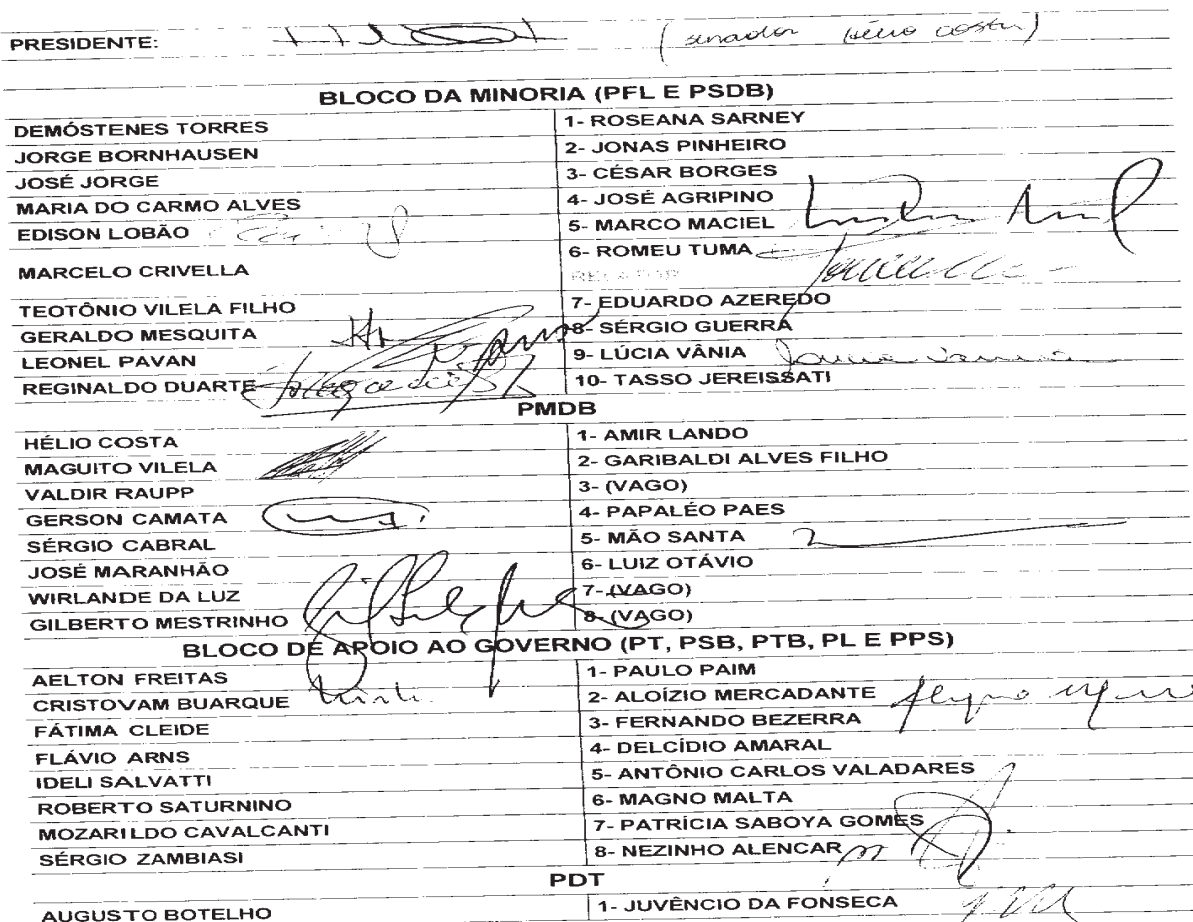 PRESIDENTE: (senador Hélio Costa)
BLOCO DA MINORIA (PFL E PSDB)
DEMÓSTENES TORRES 1- ROSEANA SARNEY
JORGE BORNHAUSEN 2- JONAS PINHEIRO
JOSÉ JORGE 3- CÉSAR BORGES
MARIA DO CARMO ALVES 4- JOSÉ AGRIPINO
EDISON LOBÃO 5- MARCO MACIEL
MARCELO CRIVELLA 6- ROMEU TUMA
RELATOR
TEOTÔNIO VILELA FILHO 7- EDUARDO AZEREDO
GERALDO MESQUITA 8- SÉRGIO GUERRA
LEONEL PAVAN 9- LÚCIA VÂNIA
REGINALDO DUARTE 10- TASSO JEREISSATI
PMDB
HÉLIO COSTA 1- AMIR LANDO
MAGUITO VILELA 2- GARIBALDI ALVES FILHO
VALDIR RAUPP 3- (VAGO)
GERSON CAMATA 4- PAPALÉO PAES
SÉRGIO CABRAL 5- MÃO SANTA
JOSÉ MARANHÃO 6- LUIZ OTÁVIO
WIRLANDE DA LUZ 7- (VAGO)
GILBERTO MESTRINHO 8- (VAGO)
BLOCO DE APOIO AO GOVERNO (PT, PSB, PTB, PL E PPS)
AELTON FREITAS 1- PAULO PAIM
CRISTOVAM BUARQUE 2- ALOÍZIO MERCADANTE
FÁTIMA CLEIDE 3- FERNANDO BEZERRA
FLÁVIO ARNS 4- DELCÍDIO AMARAL
IDELI SALVATTI 5- ANTÔNIO CARLOS VALADARES
ROBERTO SATURNINO 6- MAGNO MALTA
MOZARILDO CAVALCANTI 7- PATRÍCIA SABOYA GOMES
SÉRGIO ZAMBIASI 8- NEZINHO ALENCAR
PDT
AUGUSTO BOTELHO 1- JUVÊNCIO DA FONSECA